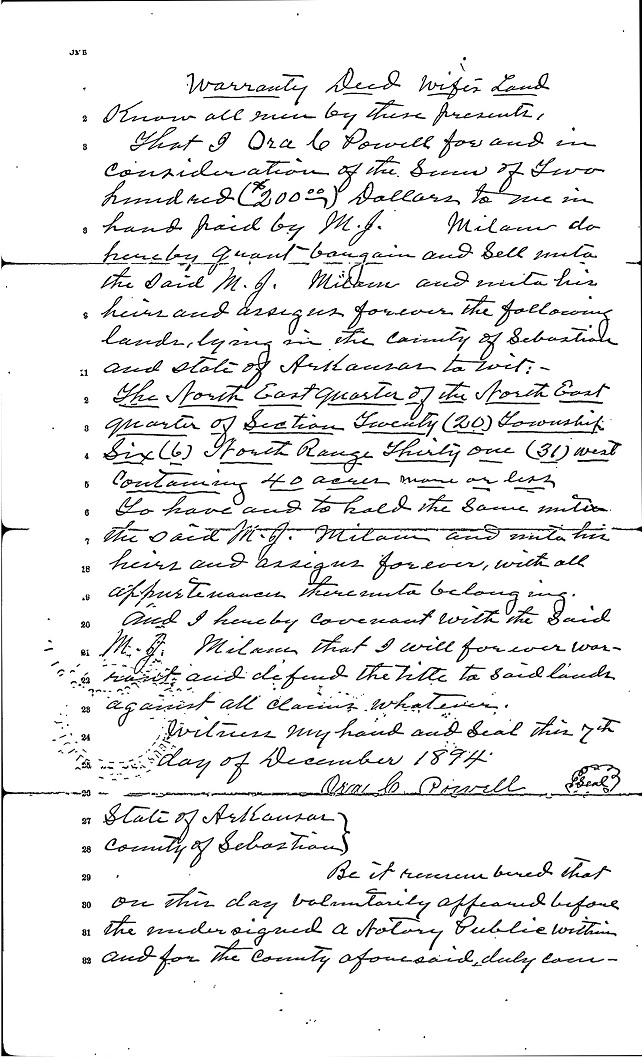 JYB
Warranty Deed Wife's Land
2 Know all men by these presents,
3 That I Ora C Powell for and in
consideration of the Sum of Two
hundred ($200 00) Dollars to me in
hand paid by M. J. Milam do
hereby grant bargain and Sell unto
the said M. J. Milam and unto his
heirs and assigns forever the following
lands, lying in the county of Sebastian
11 and state of Arkansas to wit:-
2 The North East quarter of the North East
3 quarter of Section Twenty (20) Township
4 Six (6) North Range Thirty one (31) west
5 Containing 40 acres more or less
6 To have and to hold the Same unto
7 the said M. J. Milam and unto his
18 heirs and assigns forever, with all
19 appurtenances thereunto belonging.
20 And I hereby covenant with the Said
21 M. J. Milam that I will forever war-
22 rant and defend the title to said lands
23 against all claims whatever.
24 Witness my hand and Seal this 7th
25 day of December 1894
26 Ora C Powell Seal
27 State of Arkansas }
28 County of Sebastian }
29 Be it remembered that
30 on this day voluntarily appeared before
31 the undersigned a Notary Public within
32 and for the County aforesaid, duly com-